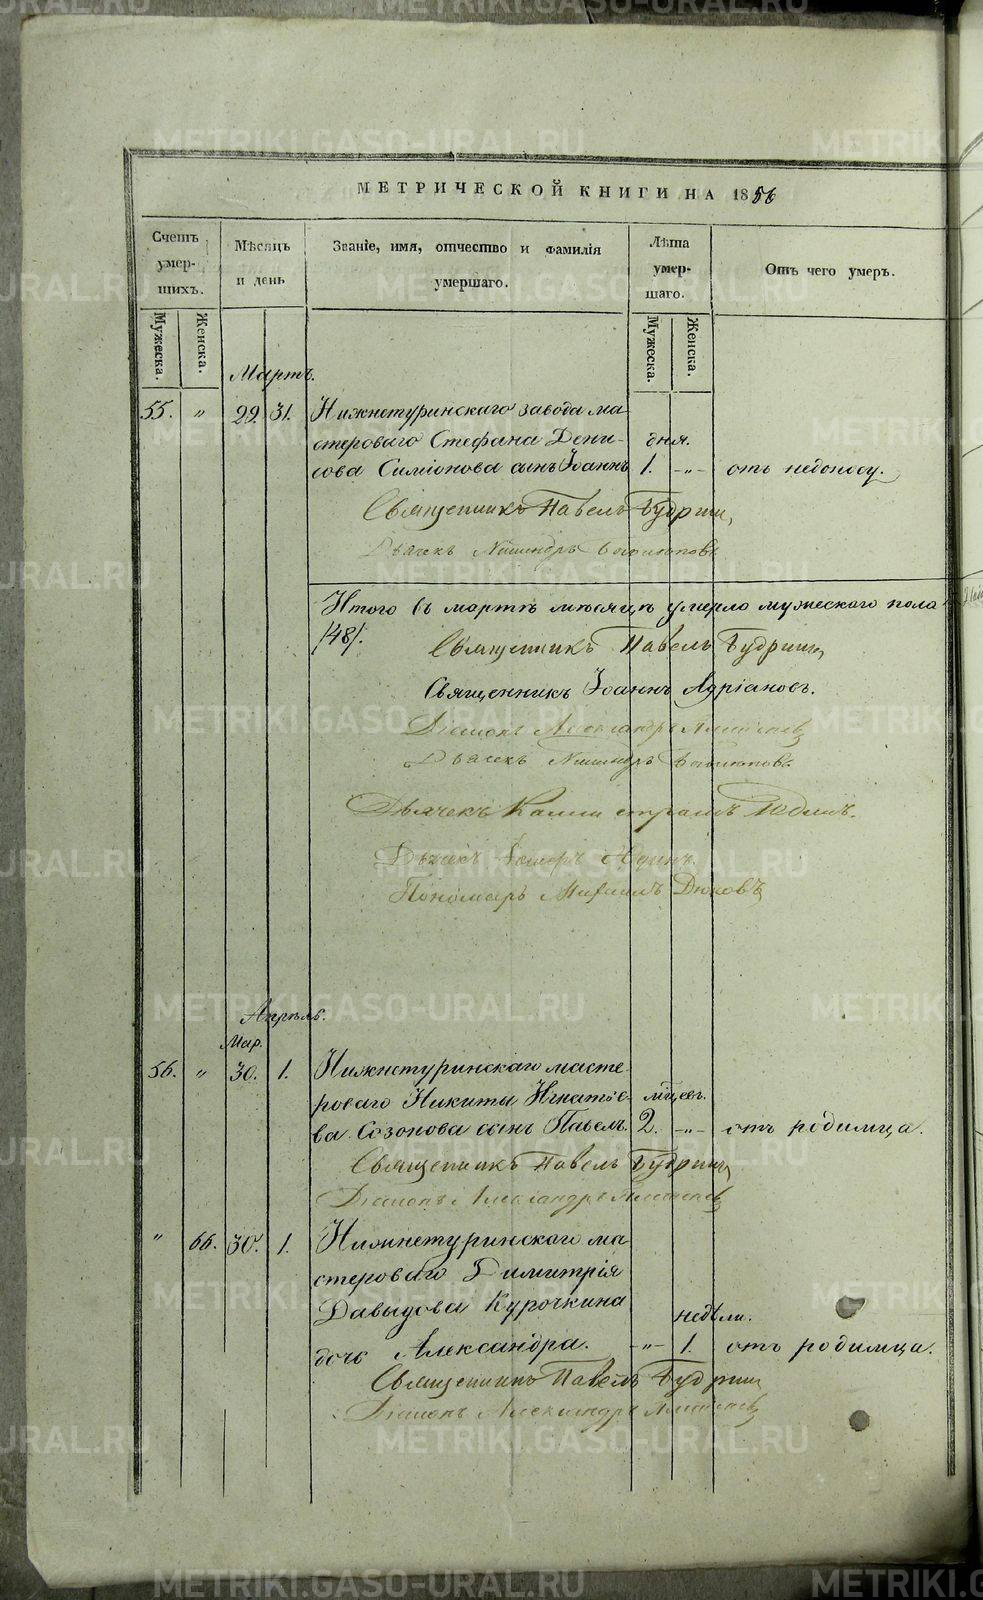 МЕТРИЧЕСКОЙ КНИГИ НА 1856
Счетъ умер- шихъ.
Мѣсяцъ и день
Званіе, имя, отчество и фамилія умершаго.
Лѣта умер- шаго.
Отъ чего умеръ.
Мужеска. Женска.
Мужеска. Женска.
Мартъ.
55. „ 29. 31. Нижнетуринскаго завода ма-
стероваго Стефана Дени- дня.
сова Симіонова сынъ Іоаннъ 1. -„- отъ недоносу.
Священникъ Павелъ Будринъ
Дьячекъ
Итого въ мартѣ мѣсяцѣ умерло мужескаго пола
/48/.
Священникъ Павелъ Будринъ
Священникъ Іоаннъ Адріановъ.
Діаконъ Александръ
Дьячекъ
Дьячекъ
Дьячекъ
Пономарь Михаилъ Дюковъ
Апрѣль.
Мар.
56. „ 30. 1. Нижнетуринскаго масте-
роваго Никиты Игнатіе- мцевъ.
ва Созонова сынъ Павелъ. 2. -„- отъ родимца.
Священникъ Павелъ Будринъ
Діаконъ Александръ
„ 66. 30. 1. Нижнетуринскаго ма-
стероваго Димитрія
Давыдова Курочкина недѣли.
дочь Александра. -„- 1. отъ родимца.
Священникъ Павелъ Будринъ
Діаконъ Александръ
METRIKI.GASO-URAL.RU